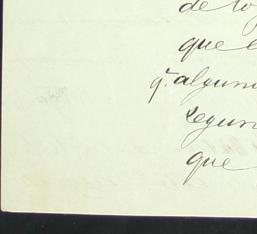 de lo
que e
q. algun
segun
que